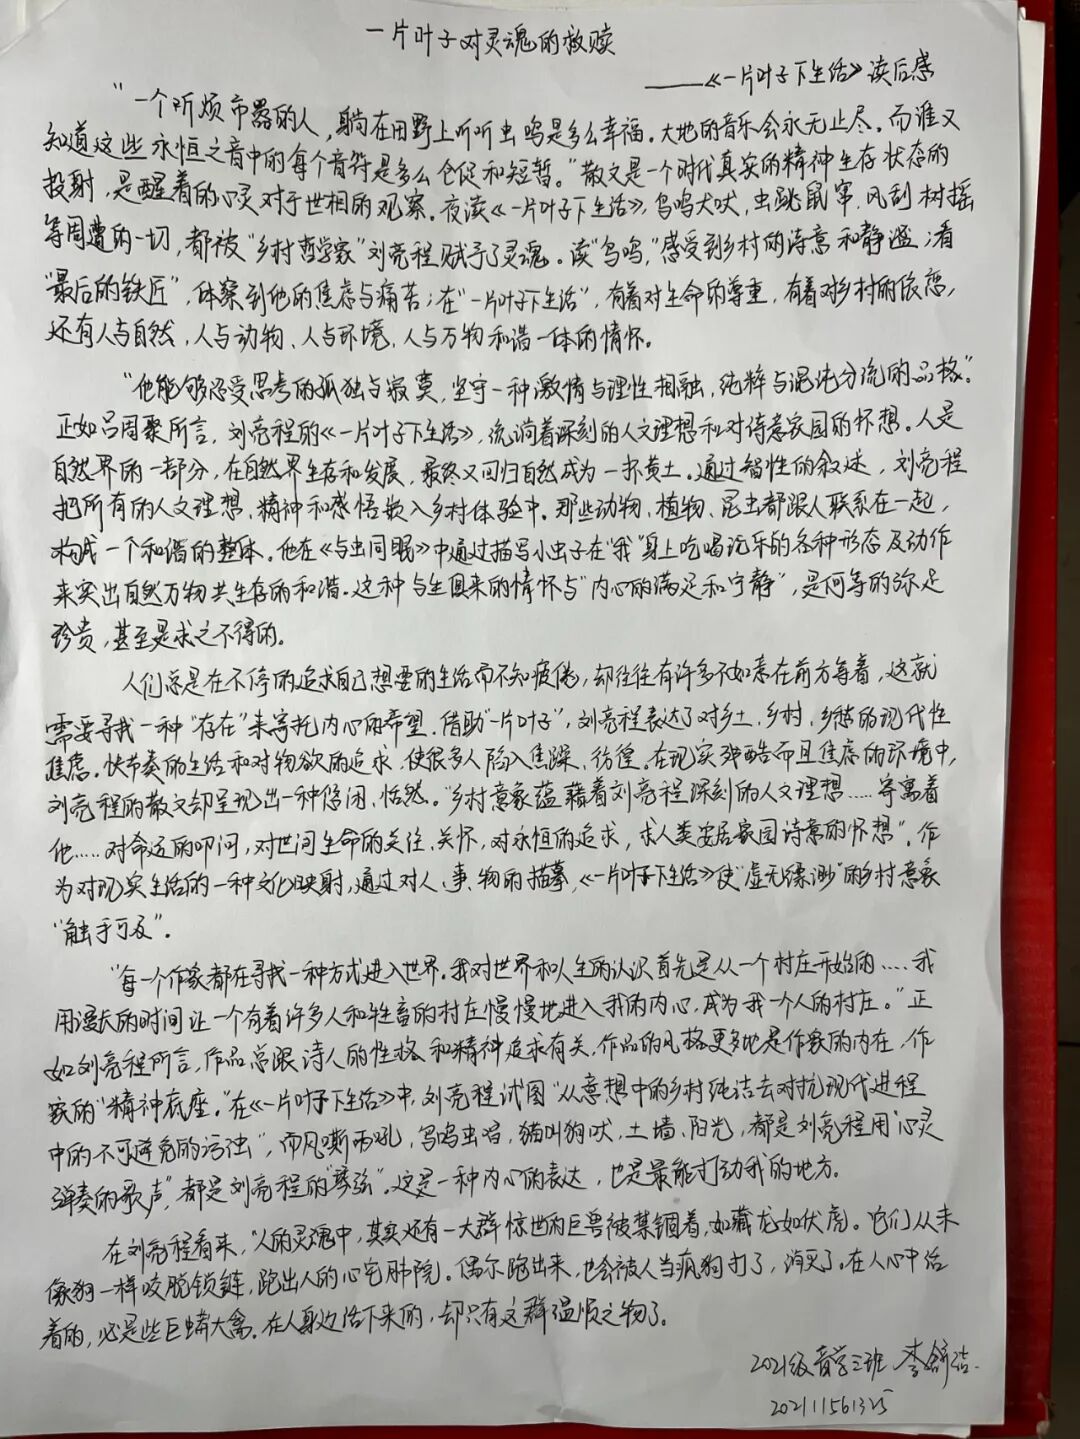 一片叶子对灵魂的救赎
——《一片叶子下生活》读后感
“一个听烦市嚣的人，躺在田野上听听虫鸣是多么幸福。大地的音乐会永无止尽。而谁又
知道这些永恒之音中的每个音符是多么仓促和短暂。”散文是一个时代真实的精神生存状态的
投射，是醒着的心灵对于世相的观察。夜读《一片叶子下生活》，鸟鸣犬吠，虫跳鼠窜，风刮树摇
等周遭的一切，都被“乡村哲学家”刘亮程赋予了灵魂。读“鸟鸣，”感受到乡村的诗意和静谧；看
“最后的铁匠”，体察到他的焦虑与痛苦；在“一片叶子下生活”，有着对生命的尊重，有着对乡村的依恋，
还有人与自然，人与动物、人与环境、人与万物和谐一体的情怀。
“他能够忍受思考的孤独与寂寞，坚守一种激情与理性相融，纯粹与混沌分流的品格。”
正如吕周聚所言，刘亮程的《一片叶子下生活》，流淌着深刻的人文理想和对诗意家园的怀想。人是
自然界的一部分，在自然界生存和发展，最终又回归自然成为一抔黄土。通过智性的叙述，刘亮程
把所有的人文理想、精神和感悟嵌入乡村体验中。那些动物、植物、昆虫都跟人联系在一起，
构成一个和谐的整体。他在《与虫同眠》中通过描写小虫子在“我”身上吃喝玩乐的各种形态及动作
来突出自然万物共生存的和谐。这种与生俱来的情怀与“内心的满足和宁静”，是何等的弥足
珍贵，甚至是求之不得的。
人们总是在不停的追求自己想要的生活而不知疲倦，却往往有许多不如意在前方等着，这就
需要寻找一种“存在”来寄托内心的希望。借助“一片叶子”，刘亮程表达了对乡土、乡村、乡愁的现代性
焦虑。快节奏的生活和对物欲的追求，使很多人陷入焦躁、彷徨。在现实残酷而且焦虑的环境中，
刘亮程的散文却呈现出一种悠闲、恬然。“乡村意象蕴藉着刘亮程深刻的人文理想……寄寓着
他……对命运的叩问，对世间生命的关注、关怀，对永恒的追求，求人类安居家园诗意的怀想”。作
为对现实生活的一种文化映射，通过对人、事、物的描摹，《一片叶子下生活》使“虚无缥渺”的乡村意象
“触手可及”。
“每一个作家都在寻找一种方式进入世界。我对世界和人生的认识首先是从一个村庄开始的……我
用漫长的时间让一个有着许多人和牲畜的村庄慢慢地进入我的内心，成为我一个人的村庄。”正
如刘亮程所言，作品总跟诗人的性格和精神追求有关，作品的风格更多地是作家的内在，作
家的“精神底座。”在《一片叶子下生活》中，刘亮程试图“从意想中的乡村纯洁去对抗现代进程
中的不可避免的污浊”，而风嘶雨吼，鸟鸣虫唱，猫叫狗吠，土墙、阳光，都是刘亮程用“心灵
弹奏的歌声”，都是刘亮程的“琴弦”。这是一种内心的表达，也是最能打动我的地方。
在刘亮程看来，“人的灵魂中，其实还有一大群惊世的巨兽被禁锢着，如藏龙如伏虎。它们从未
像狗一样咬脱锁链，跑出人的心宅肺院。偶尔跑出来，也会被人当疯狗打了，消灭了。在人心中活
着的，必是些巨蟒大禽。在人身边活下来的，却只有这群温顺之物了。
2021级音学三班 李舒洁
202111561325